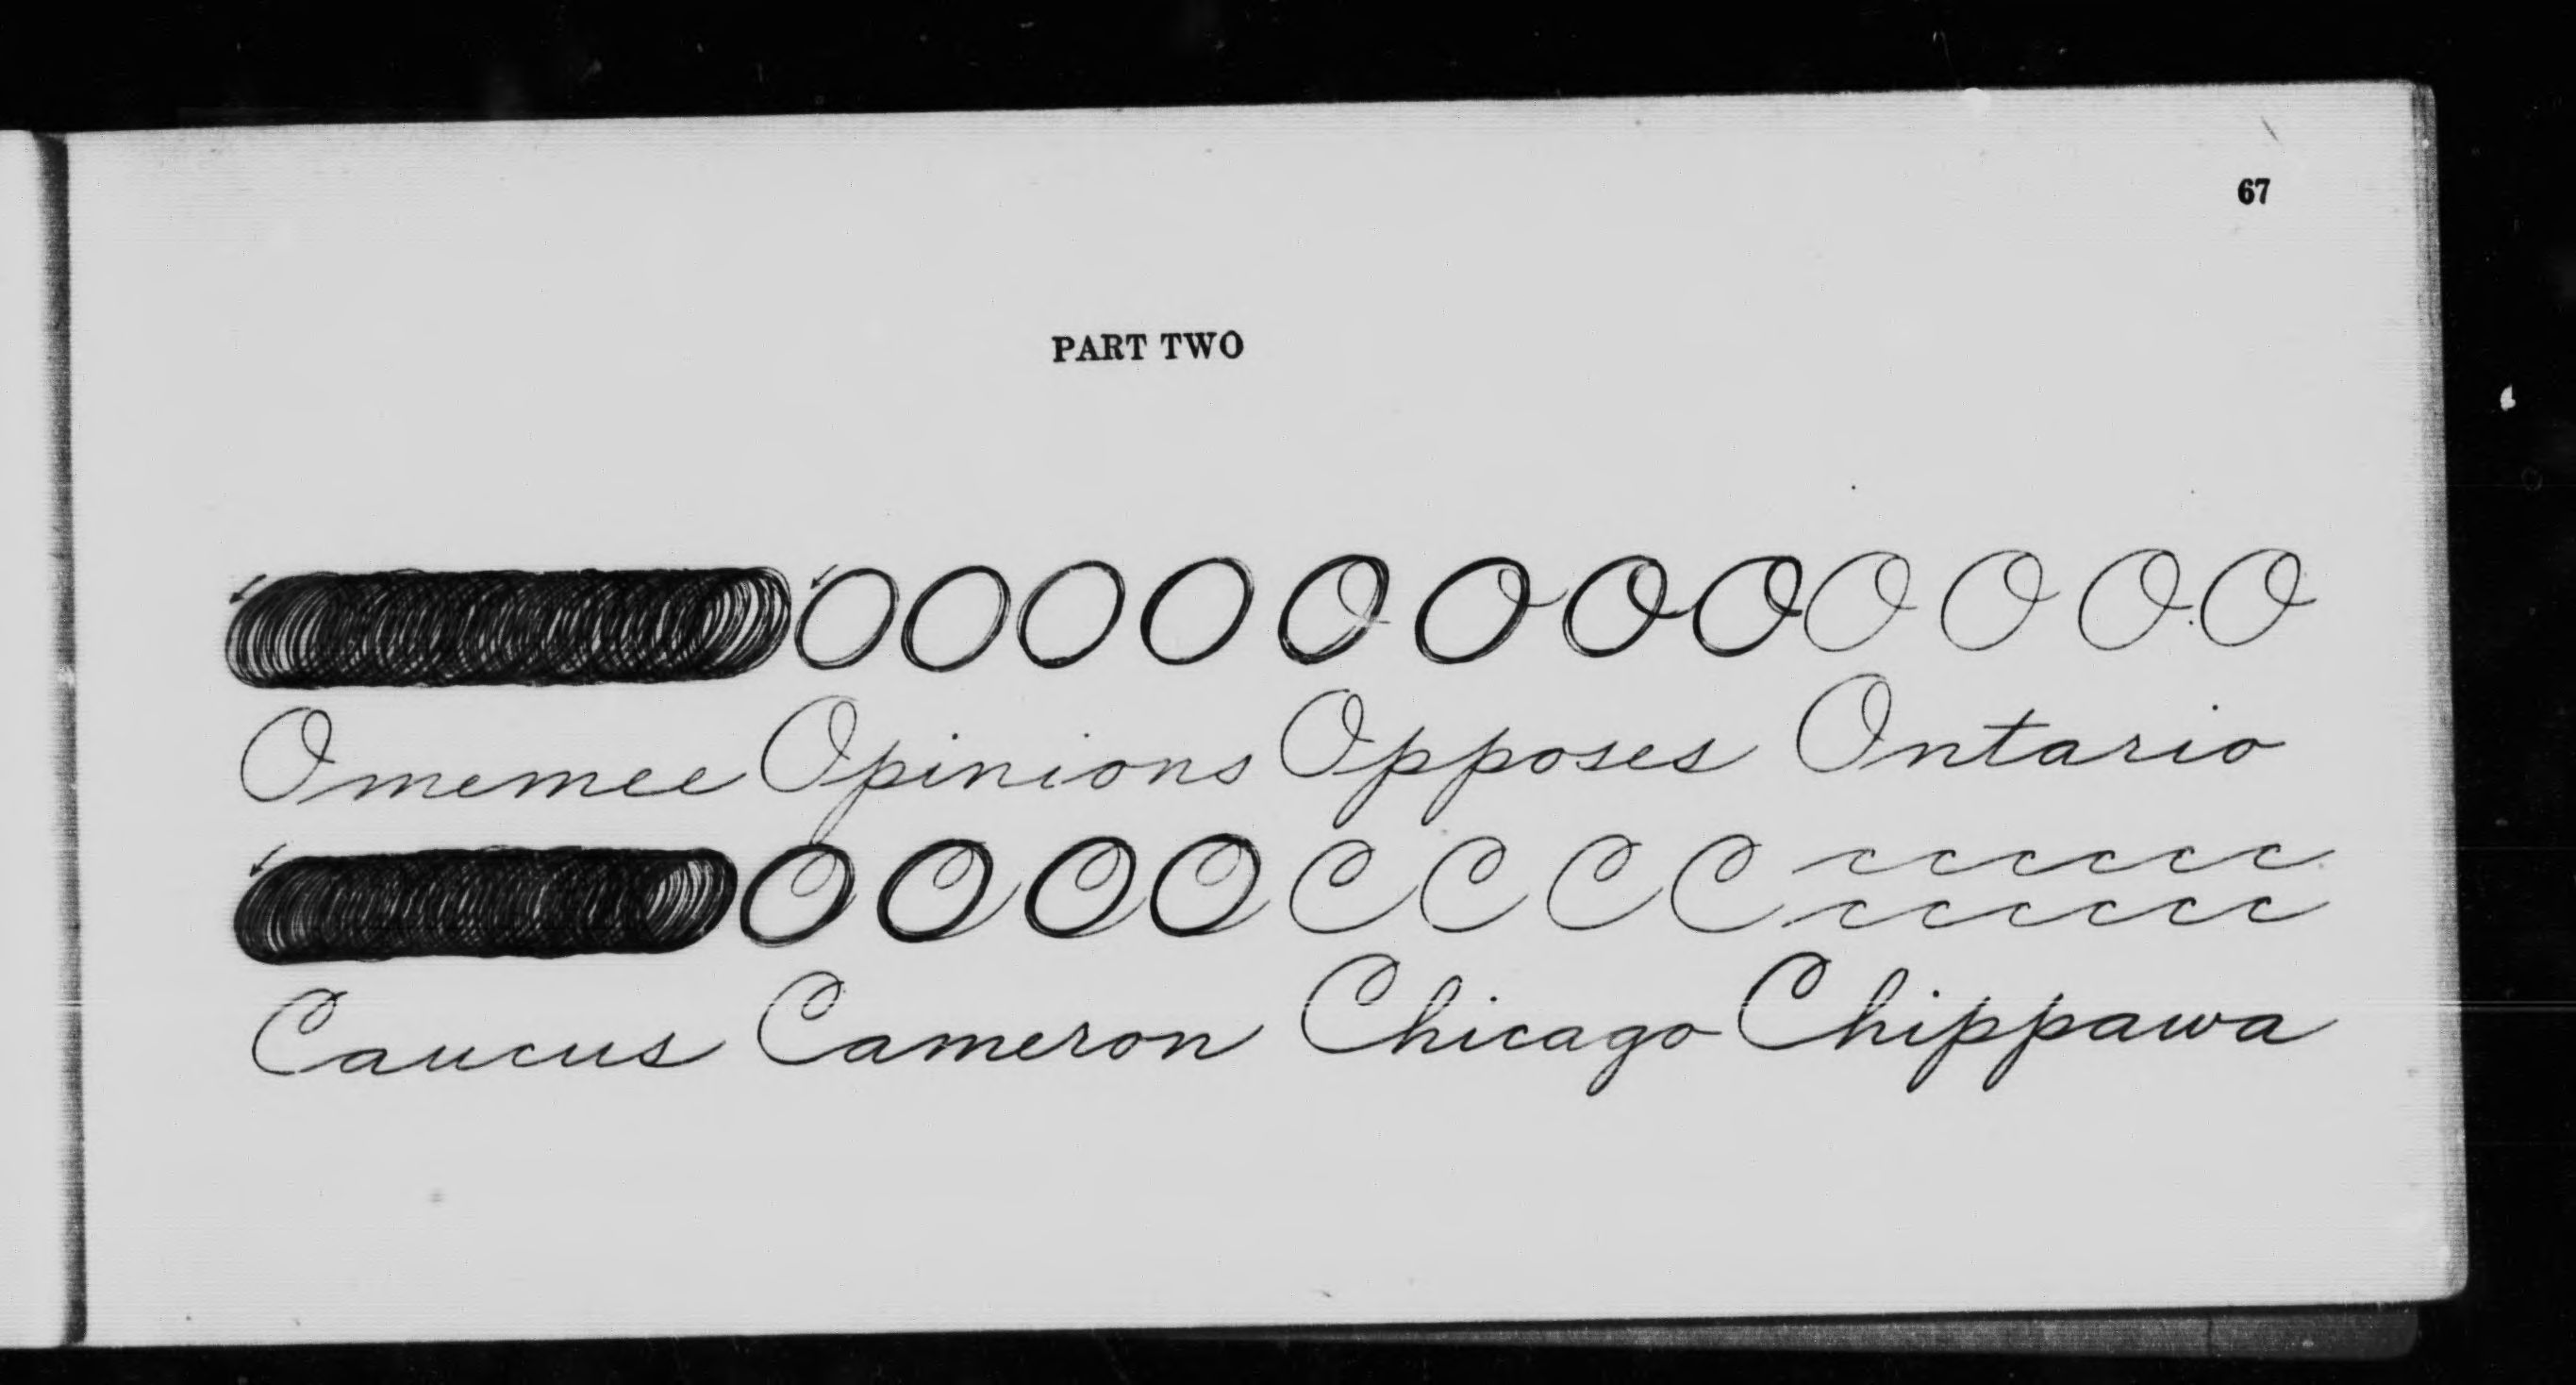 67
PART TWO
O O O O O O O O O O O O
Omemee Opinions Opposes Ontario
O O O O C C C C c c c c c c
c c c c c c
Caucus Cameron Chicago Chippawa